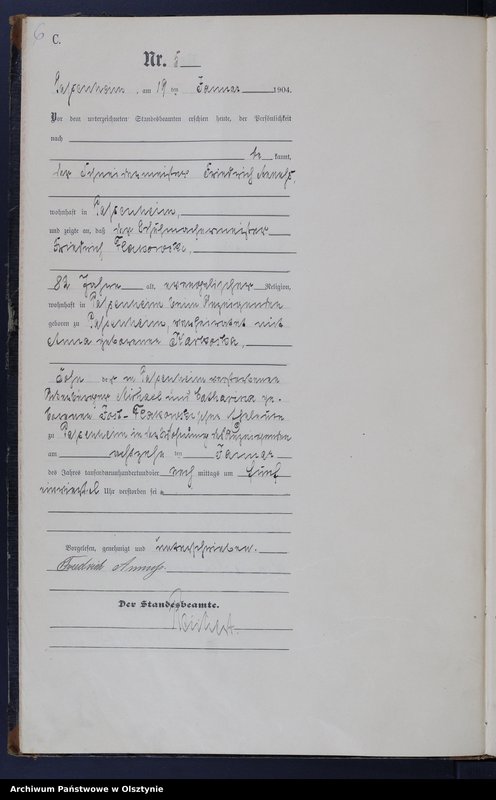 6
C.
Nr. 5
Passenheim, am 19 ten Januar 1904.
Vor dem unterzeichneten Standesbeamten erschien heute, der Persönlichkeit
nach
be kannt,
der Schneidermeister Friedrich
wohnhaft in Passenheim,
und zeigte an, daß der Schuhmachermeister
Friedrich
82 Jahre alt, evangelischer Religion,
wohnhaft in Passenheim beim Anzeigenden
geboren zu Passenheim, verheiratet mit
Anna geborenen
Sohn der in Passenheim verstorbenen
Michael und Catharina ge-
borenen Eheleute
zu Passenheim in der Wohnung des Anzeigenden
am achtzehn ten Januar
des Jahres tausendneunhundertundvier nach mittags um fünf
einviertel Uhr verstorben sei
Vorgelesen, genehmigt und unterschrieben.
Friedrich
Der Standesbeamte.
Archiwum Państwowe w Olsztynie